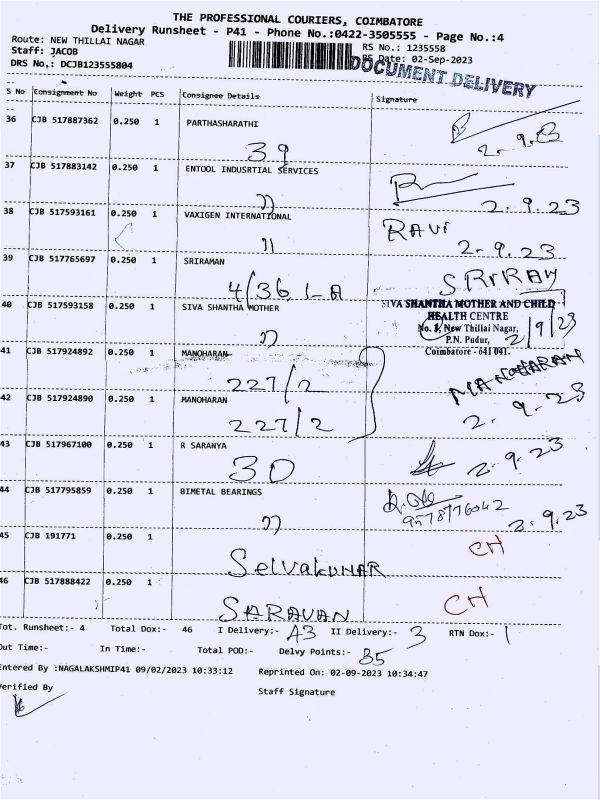 THE PROFESSIONAL COURIERS, COIMBATORE
Delivery Runsheet - P41 - Phone No.:0422-3505555 - Page No.:4
Route: NEW THILLAI NAGAR
RS No.: 1235558
Staff: JACOB
RS Date: 02-Sep-2023
DRS No.: DCJB123555804
DOCUMENT DELIVERY
S No Consignment No Weight PCS Consignee Details Signature
36 CJB 517887362 0.250 1 PARTHASHARATHI
39 2.9.23
37 CJB 517883142 0.250 1 ENTOOL INDUSRTIAL SERVICES
2.9.23
38 CJB 517593161 0.250 1 VAXIGEN INTERNATIONAL RAVI
2.9.23
39 CJB 517765697 0.250 1 SRIRAMAN
4/36 L-A SRIRAM
40 CJB 517593158 0.250 1 SIVA SHANTHA MOTHER
SIVA SHANTHA MOTHER AND CHILD
HEALTH CENTRE
No. 1, New Thillai Nagar,
P.N. Pudur,
Coimbatore - 641 041.
2/9/23
41 CJB 517924892 0.250 1 MANOHARAN
227/2 MANOHARAN
42 CJB 517924890 0.250 1 MANOHARAN
227/2 2.9.23
43 CJB 517967100 0.250 1 R SARANYA
30 2.9.23
44 CJB 517795859 0.250 1 BIMETAL BEARINGS
9578776042 2.9.23
45 CJB 191771 0.250 1
Selvakumar CH
46 CJB 517888422 0.250 1
SARAVAN CH
Tot. Runsheet:- 4 Total Dox:- 46 I Delivery:- 43 II Delivery:- 3 RTN Dox:- 1
Out Time:- In Time:- Total POD:- Delvy Points:- 35
Entered By :NAGALAKSHMIP41 09/02/2023 10:33:12 Reprinted On: 02-09-2023 10:34:47
Verified By
Staff Signature